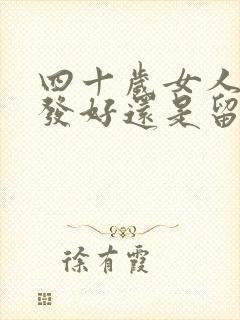 四十歲女人
發好還是留
徐有霞